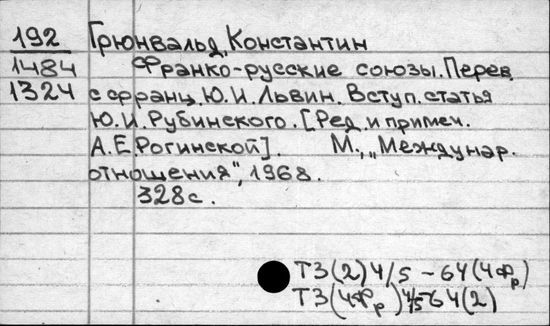 192 Грюнвальд, Константин
1484 Франко-русские союзы. Перев.
1324 с франц. Ю.И. Львин. Вступ. статья
Ю.И. Рубинского. [Ред. и примеч.
А.Е. Рогинской]. М., „Междунар.
отношения", 1968.
328 с.
Т3(2)4/5 - 64(4Фр)
Т3(4Фр)4/5-64(2)